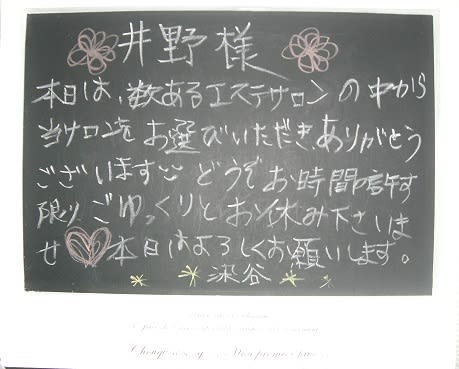 井野様
本日は、数あるエステサロンの中から
当サロンをお選びいただきありがとう
ございます どうぞお時間の許す
限りごゆっくりとお休み下さいま
せ 本日はよろしくお願いします。
深谷